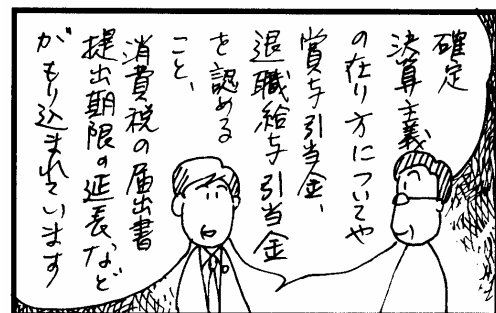 確定
決算主義
の在り方についてや
賞与引当金、
退職給与引当金
を認める
こと、
消費税の届出書
提出期限の延長、など
がもり込まれています